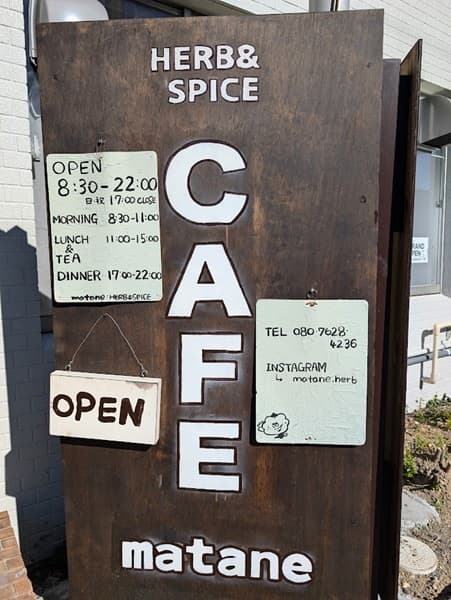 HERB&
SPICE
CAFE
matane
OPEN
8:30-22:00
17:00 CLOSE
MORNING 8:30-11:00
LUNCH 11:00-15:00
&
TEA
DINNER 17:00-22:00
matane HERB&SPICE
OPEN
TEL 080-7628-
4236
INSTAGRAM
↳ matane.herb